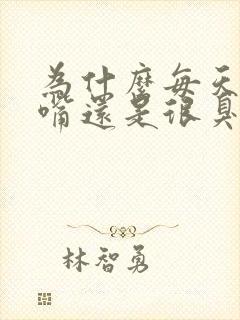 為什麼每天
嘴還是很臭
林智勇